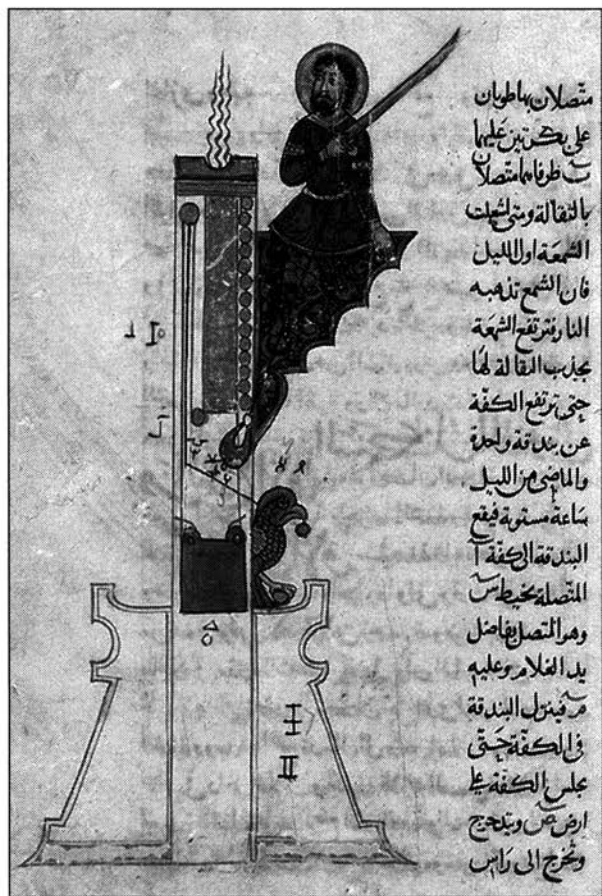 متصلان بها طوبان
على بكرتين عليهما
طرفاهما متصلان
بالثقالة ومتى اشعلت
الشمعة اول الليل
فان الشمع تذهبه
النار فترتفع الشمعة
بجذب الثقالة لها
حتى ترتفع الكفة
عن بندقة واحدة
والماضى من الليل
ساعة مستوية فيقع
البندقة الى الكفة آ
المتصلة بخيط س
وهو المتصل بفاضل
يد الغلام وعليه
فينزل البندقة
فى الكفة حتى
يجلس الكفة على
ارض ص ويتدحرج
وتخرج الى راس